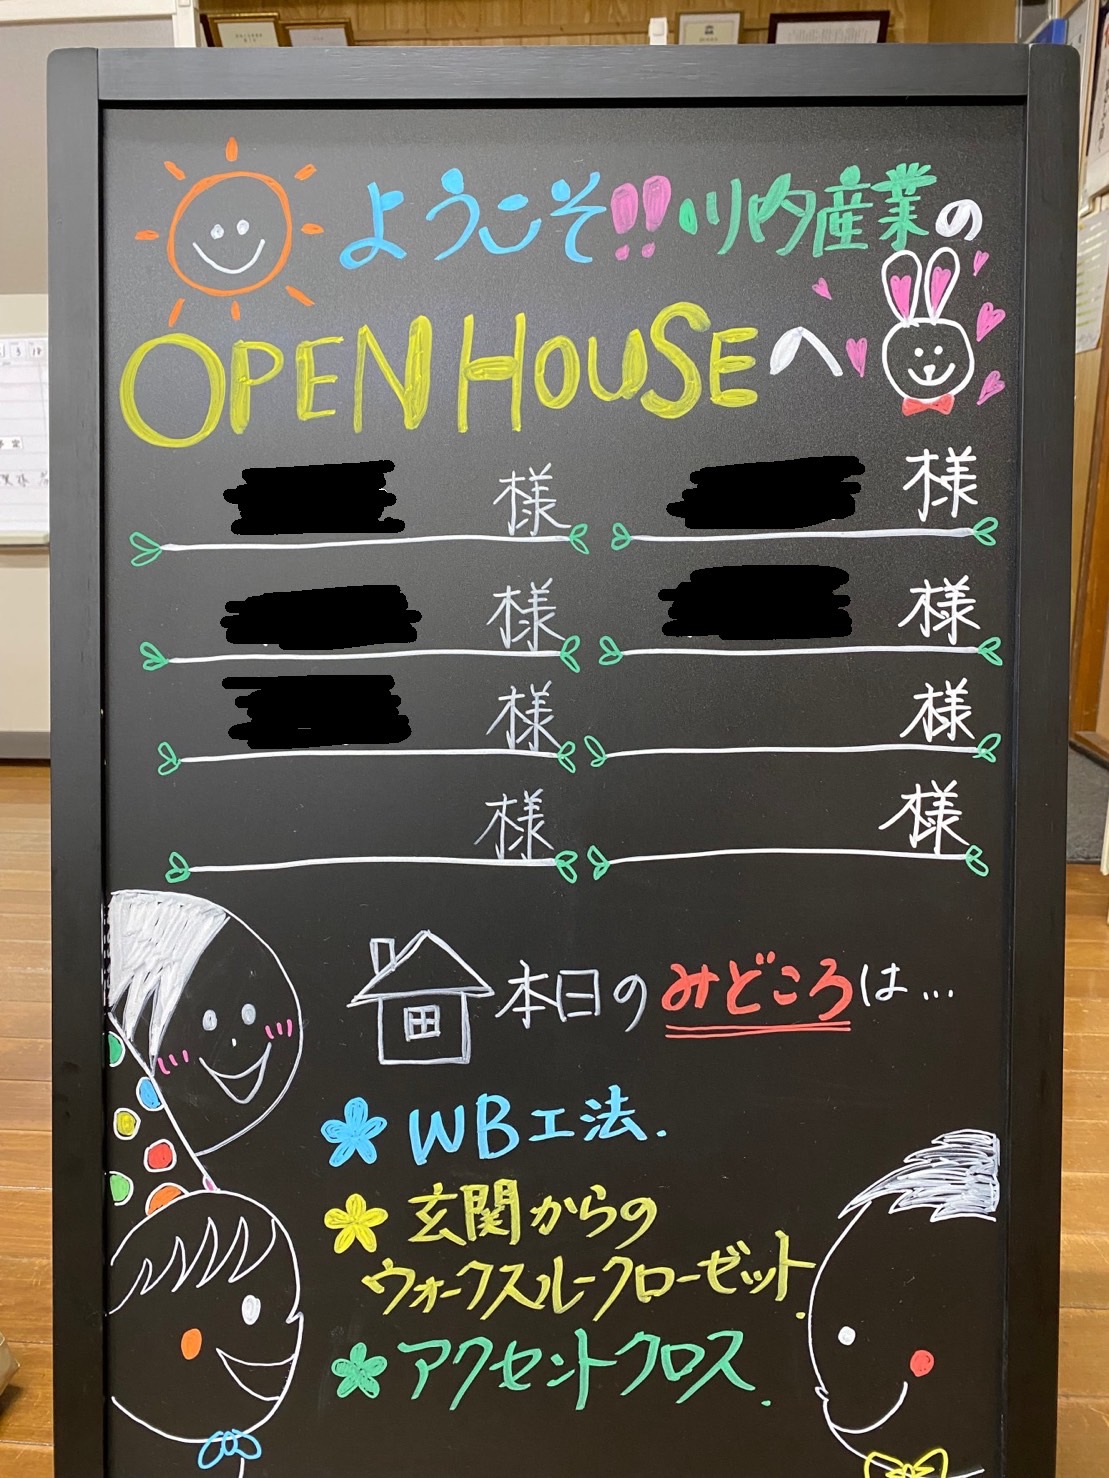 ようこそ!!川内産業の
OPEN HOUSEへ
様 様
様 様
様 様
様 様
本日のみどころは…
WB工法.
玄関からの
ウォークスルークローゼット.
アクセントクロス.